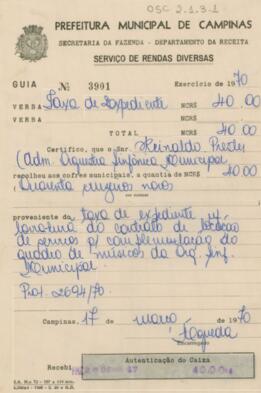 OSC 2.1.3.1
PREFEITURA MUNICIPAL DE CAMPINAS
SECRETARIA DA FAZENDA - DEPARTAMENTO DA RECEITA
SERVIÇO DE RENDAS DIVERSAS
GUIA Nº 3901 Exercício de 1970
VERBA Taxa de Expediente NCR$ 40.00
VERBA NCR$
TOTAL NCR$ 40.00
Certifico, que o Snr. Reinaldo Prestes
(Adm. Orquestra Sinfônica Municipal
recolheu aos cofres municipais, a quantia de NCR$ 40.00
(Quarenta cruzeiros novos
proveniente da taxa de expediente p/
lavratura do contrato de locação
de serviços p/ complementação do
quadro de músicos da Orq. Sinf.
Municipal.
Prot. 2694/70.
Campinas, 17 de março de 1970
Encarregado
Autenticação do Caixa
Recebi 40.00